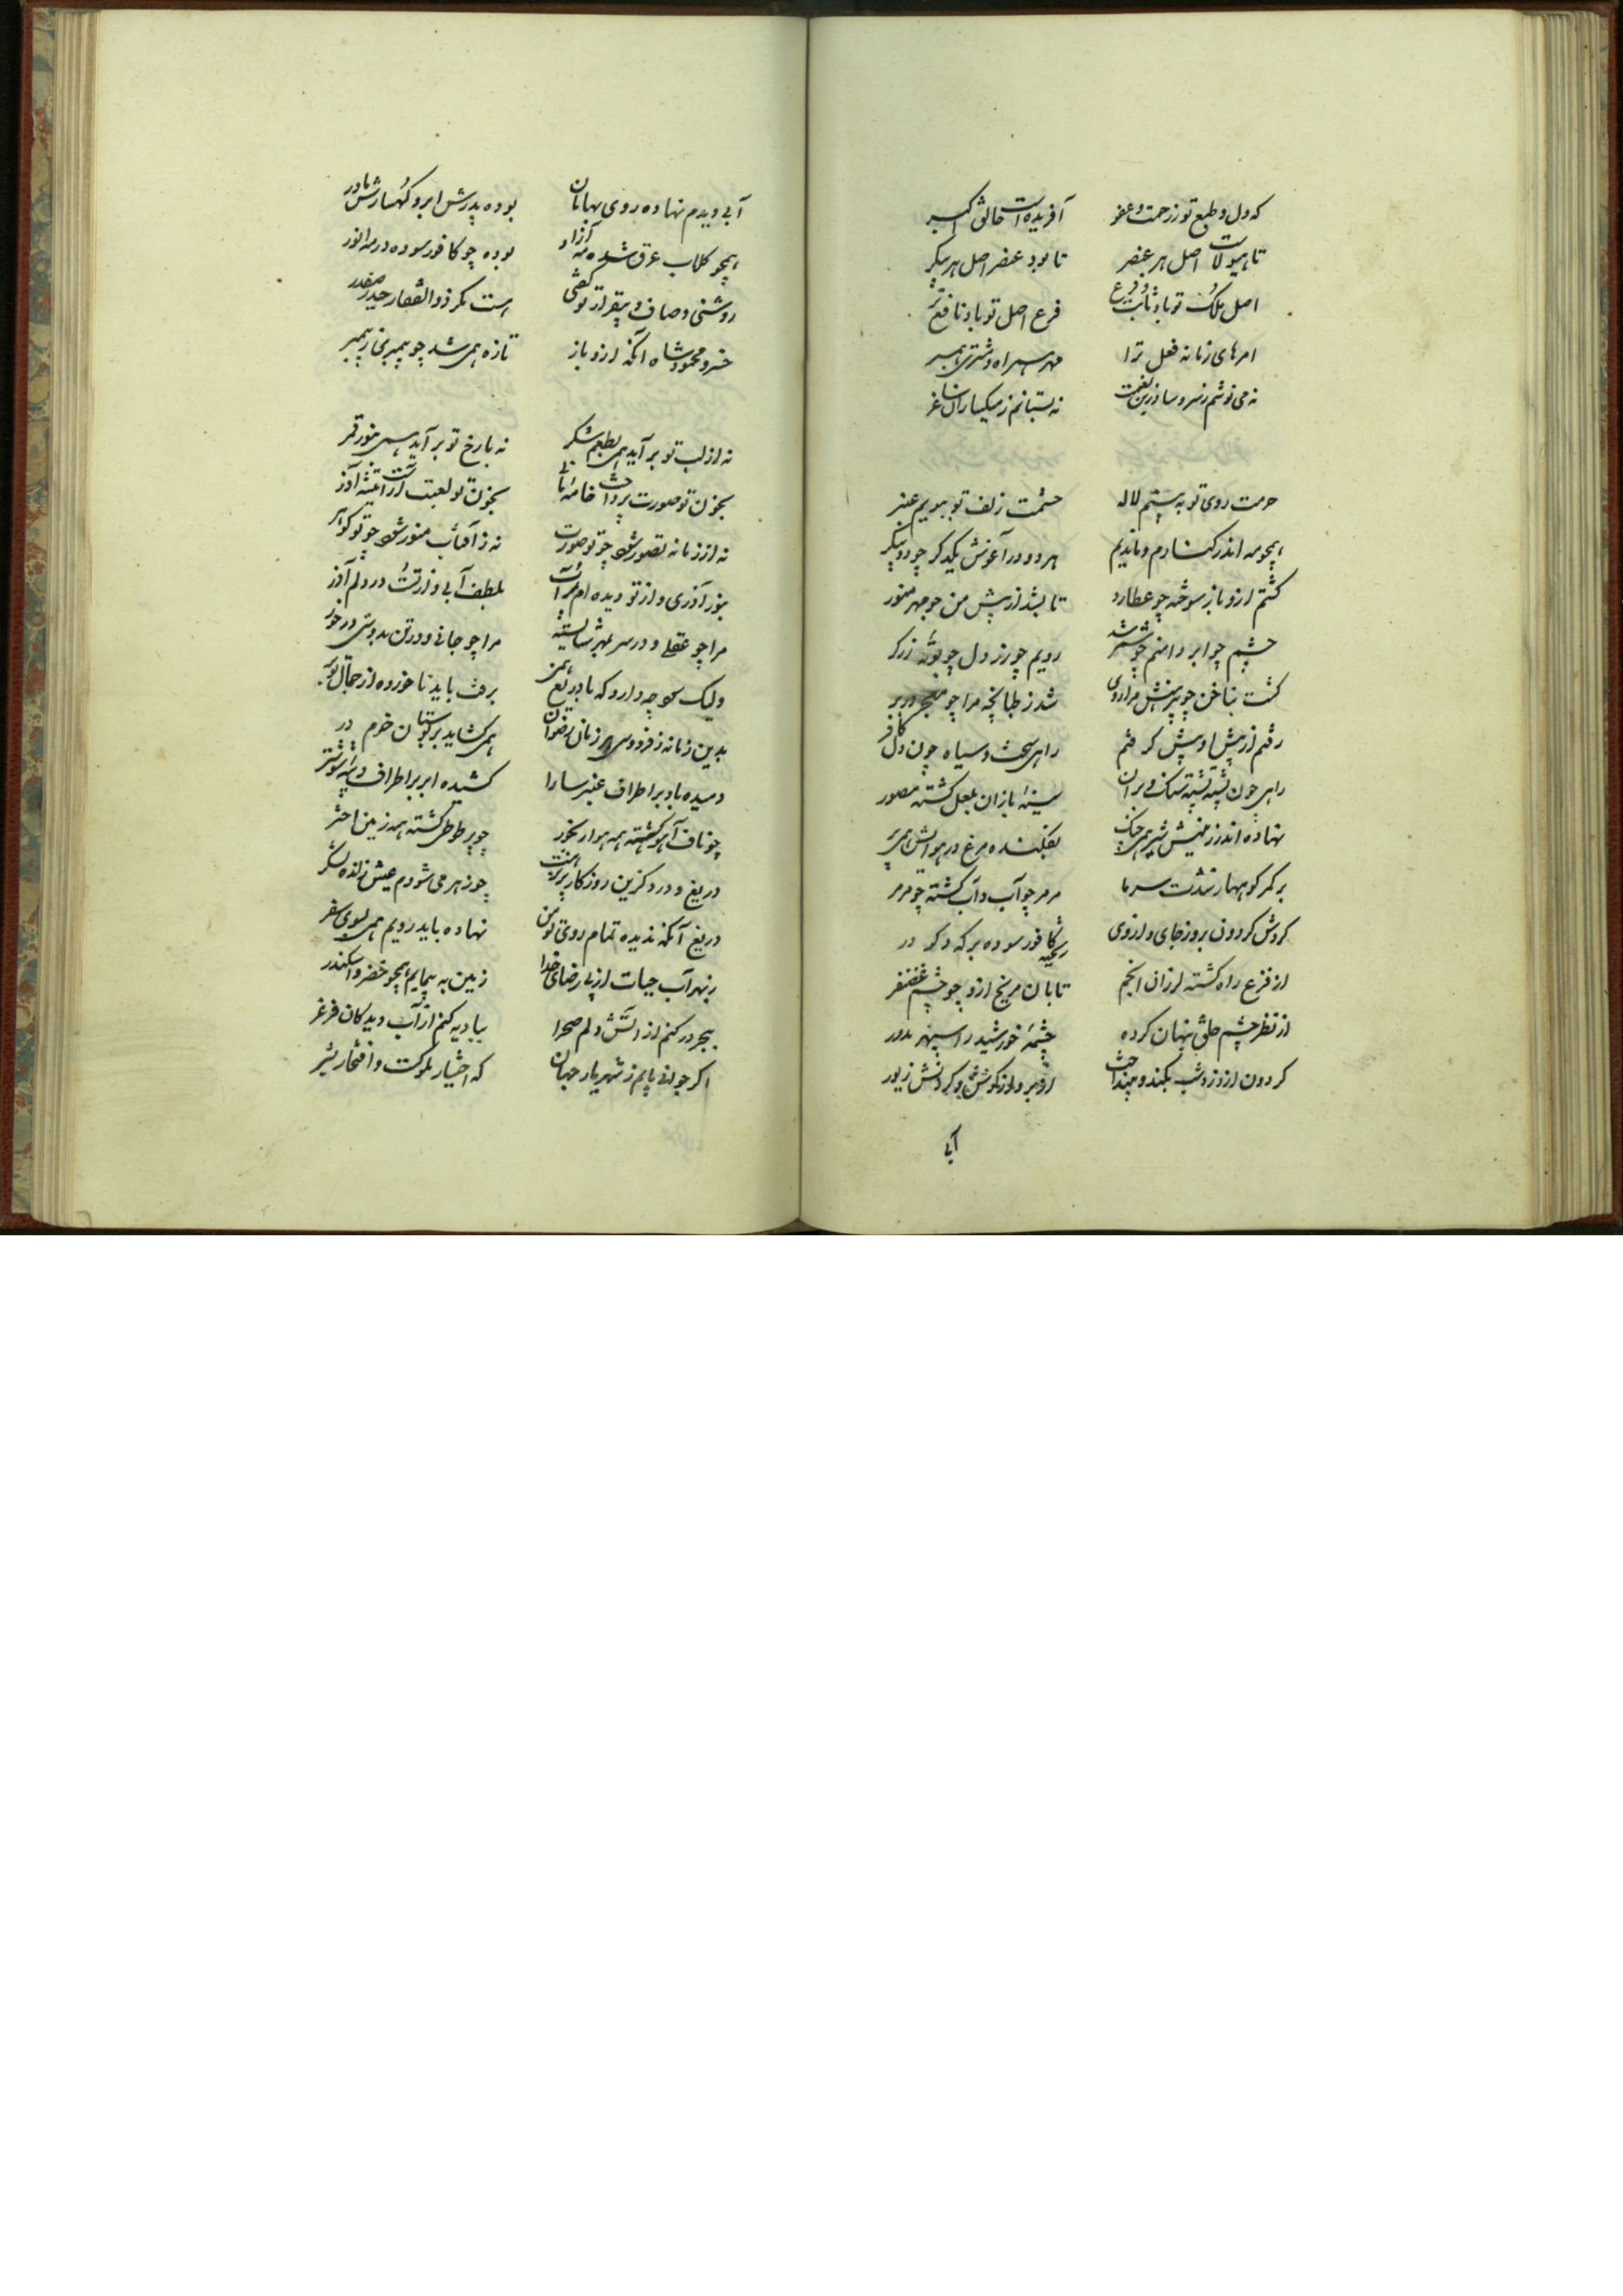 که دل و طبع تو ز رحمت و عفو آفریده است خالق اکبر
تا هیولاست اصل هر عنصر تا بود عنصر اصل هر پیکر
اصل ملک تو باد ثابت و فرع اصل تو باد نافع
امرهای زمانه فعل ترا مهر همراه و مشتری همبر
نه می نوشم نه بستانم ز میگساران ساغر
حرمت روی تو بپرستم لاله حشمت زلف تو ببویم عنبر
همچو مه اندر کنارم و ماندیم هر دو در آغوش یکدگر چو دو پیکر
گشتم ازو باز سوخته چو عطارد تا بشد از پیش من چو مهر منور
چشم چو ابر و دلم چو رویم چو زر و دل چو بوته زرگر
گشت بناخن چو پیرهنش مرا روی شد ز طپانچه مرا چو در بر
رفتم از پیش او پیش گرفتم راهی سخت و سیاه چون دل کافر
راهی چون پشته پشته سنگ و بر آن سینه بازان بنعل گشته مصور
نهاده اندر زمینش شیر همی چنگ بفکنده مرغ در هوایش همی پر
بر کمر کوهها ز شدت سرما مرمر چو آب و آب گشته چو مرمر
گردش گردون بروز جای و از وی ریخته کافور سوده بر که و کردر
از فزع راه گشته لرزان انجم تابان مریخ ازو چو چشم غضنفر
از نظر چشم خلق پنهان کرده چشمه خورشید را سپهر مدور
گردون از روز و شب بکند و بینداخت از بر و از گوش و گردنش زیور
آبی
آبی دیدم نهاده روی بهامان بوده پدرش ابر و کهسارش مادر
همچو گلاب و عرق شده مه آزار بوده چو کافور سوده در مه آذر
روشنی و صافی و بیقرار تو گفتی هست مگر ذوالفقار حیدر صفدر
خسرو محمود شاه آنکه ازو باز تازه همی شد چو پیمبری ز پیمبر
نه از لب تو بر آید همی بطعم شکر نه با رخ تو بر آید همی بنور قمر
بخوبی تو صورت پرداخت خامه مانی بخوبی تو لعبت آراست تیشه آزر
نه از زمانه تصور شود چو تو صورت نه ز آفتاب منور شود چو تو گوهر
بنور آذری و از تو دیده ام پر آب بلطف آبی و از تست در دلم آذر
مرا چو عقلی و در سر بمهر شایسته مرا چو جانی و در تن بدوستی در خور
ولیک سود چه دارد که با دریغ همی برفت باید ناخورده از جمال تو بر
بدین زمانه ز فردوس هر زمان رضوان همی گشاید بر بوستان خرم در
دمیده باد بر اطراف عنبر سارا کشیده ابر بر اطراف دیبه شوشتر
چو ناف آهو گشته همه هوا ز بخور چو پر طوطی گشته همه زمین اخضر
دریغ و درد کزین روزگار چو زهر می شودم عیش زان لب شکر
دریغ آنکه ندیده تمام روی تو من نهاده باید رویم همی بسوی سفر
ز بهر آب حیات از پی رضای خدا زمین به پیمایم همچو خضر و اسکندر
ببحر در کنم از آتش دلم صحرا ببادیه کنم از آب دیدگان فرغر
اگر جوابی یابم ز شهریار جهان که اختیار ملوکست و افتخار بشر